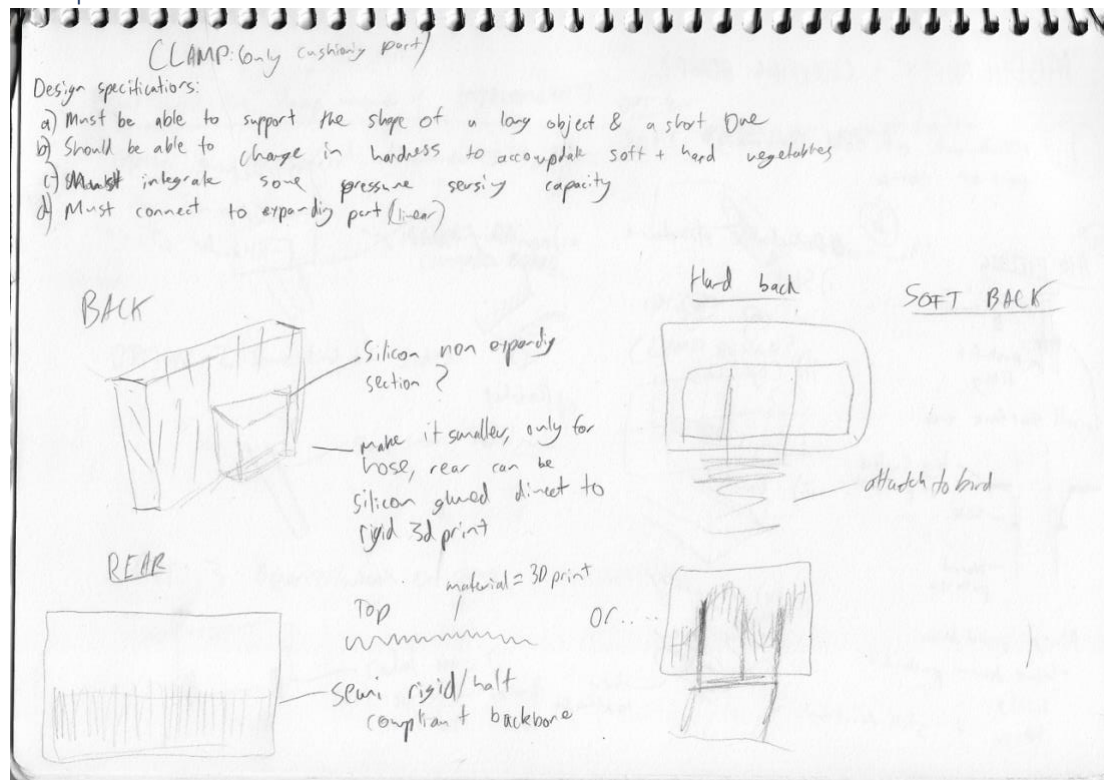 CLAMP: (only cushioniy part)
Design specifications:
a) Must be able to support the shape of a long object & a short one
b) Should be able to change in hardness to accoupdate soft + hard vegetables
c) Must integrate some pressure sensiy capacity
d) Must connect to expandiy part (linear)
BACK
Silicon non expandiy
section ?
make it smaller, only for
hose, rear can be
silicon glued direct to
rigid 3d print
Hard back
SOFT BACK
attatch to bird
REAR
material = 3D print
Top
semi rigid/half
compliant backbone
or....